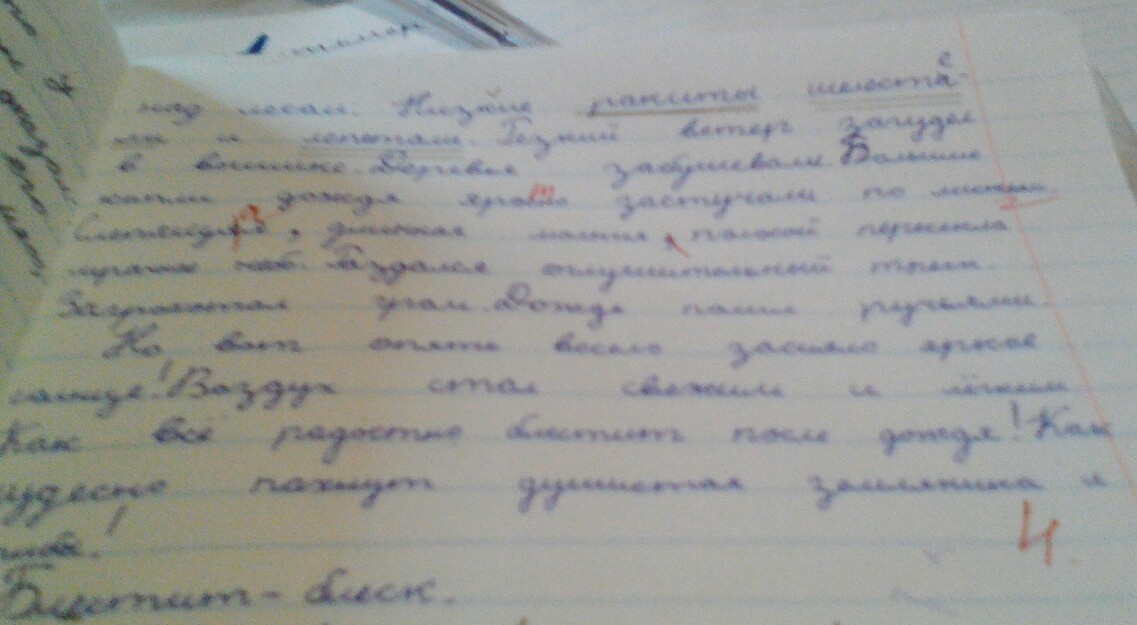 над лесом. Низкие ракиты шелеста-
ли и лепетали. Резкий ветер загудел
в вышине. Деревья забушевали. Большие
капли дождя застучали по листьям.
длинная молния полосой пересекла
мрачное небо. Раздался оглушительный треск.
Загрохотал гром. Дождь полил ручьями.
Но вот опять весело засияло яркое
солнце! Воздух стал свежим и лёгким
Как всё радостно блестит после дождя! Как
чудесно пахнут душистая земляника и
грибы!
4.
Блестит - блеск.